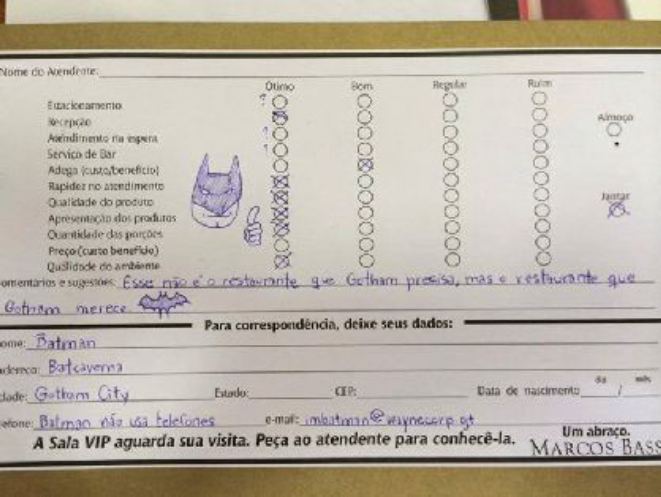 Nome do Atendente:
Ótimo Bom Regular Ruim
Estacionamento ?
Recepção
Atendimento na espera ?
Serviço de Bar ?
Adega (custo/benefício)
Rapidez no atendimento
Qualidade do produto
Apresentação dos produtos
Quantidade das porções
Preço (custo benefício)
Qualidade do ambiente
Almoço
Jantar
omentários e sugestões: Esse não é o restaurante que Gotham precisa, mas o restaurante que
Gotham merece
Para correspondência, deixe seus dados:
ome: Batman
ndereço: Batcaverna
idade: Gotham City Estado: CEP: Data de nascimento dia / mês
efone: Batman não usa telefones e-mail: imbatman@waynecorp.gt
A Sala VIP aguarda sua visita. Peça ao atendente para conhecê-la.
Um abraço.
MARCOS BASS